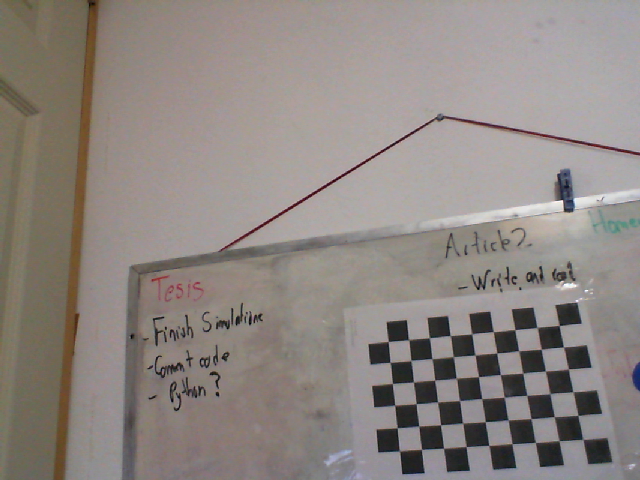 Tesis
- Finish Simulations
- Commt code
- Python?
Article 2
- Write and read